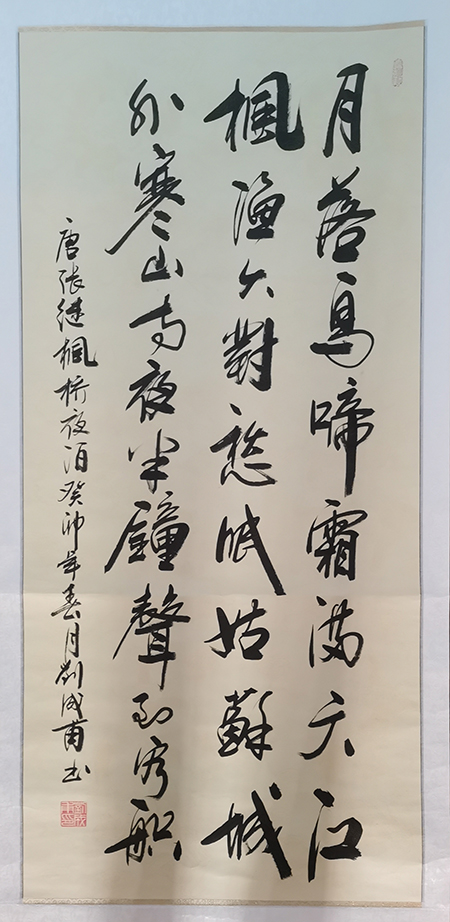 月落烏啼霜满天江
楓漁火對愁眠姑蘇城
外寒山寺夜半鐘聲到客船
唐張继楓橋夜泊癸卯年春月劉成甫书